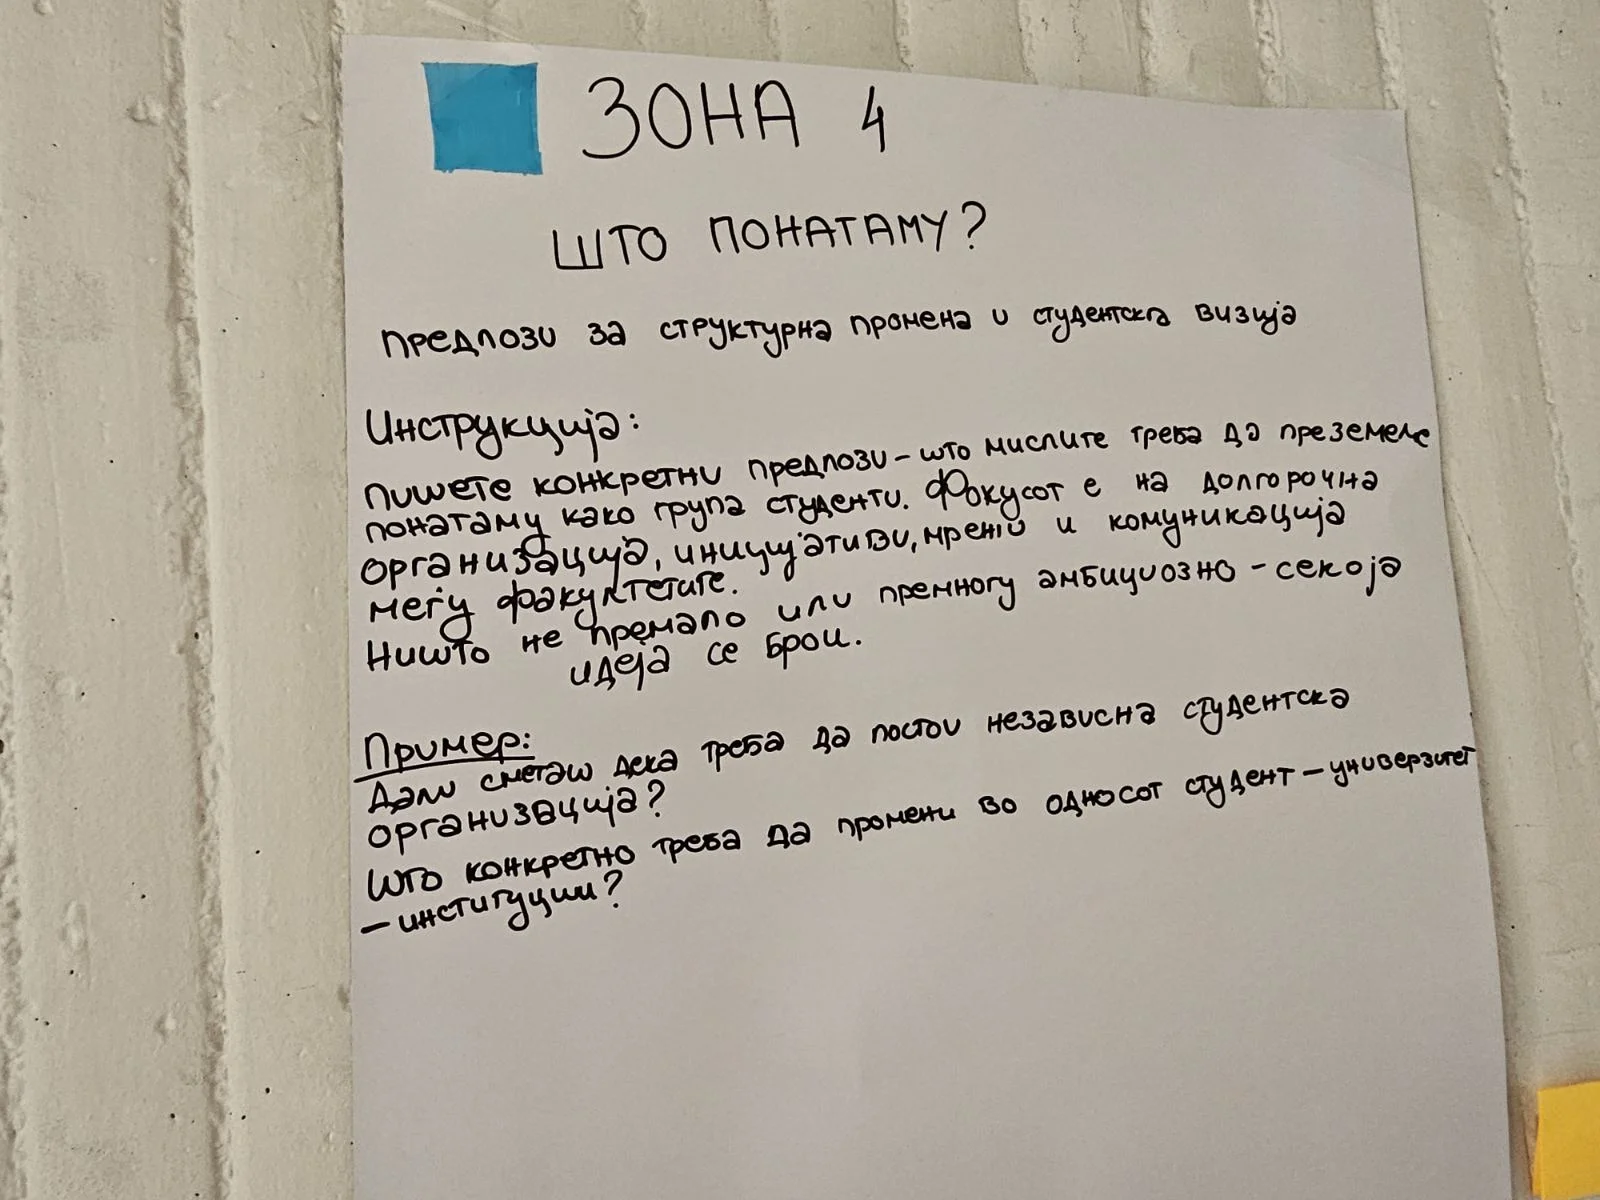 ЗОНА 4
ШТО ПОНАТАМУ?
ПРЕДЛОЗИ ЗА СТРУКТУРНА ПРОМЕНА И СТУДЕНТСКА ВИЗИЈА
Инструкција:
Пишете конкретни предлози - што мислите треба да преземеме
понатаму како група студенти. Фокусот е на долгорочна
организација, иницијативи, мрежи и комуникација
меѓу факултетите.
Ништо не премало или премногу амбициозно - секоја
идеја се брои.
Пример:
Дали сметаш дека треба да постои независна студентска
организација?
Што конкретно треба да промени во односот студент - универзитет
- институции?